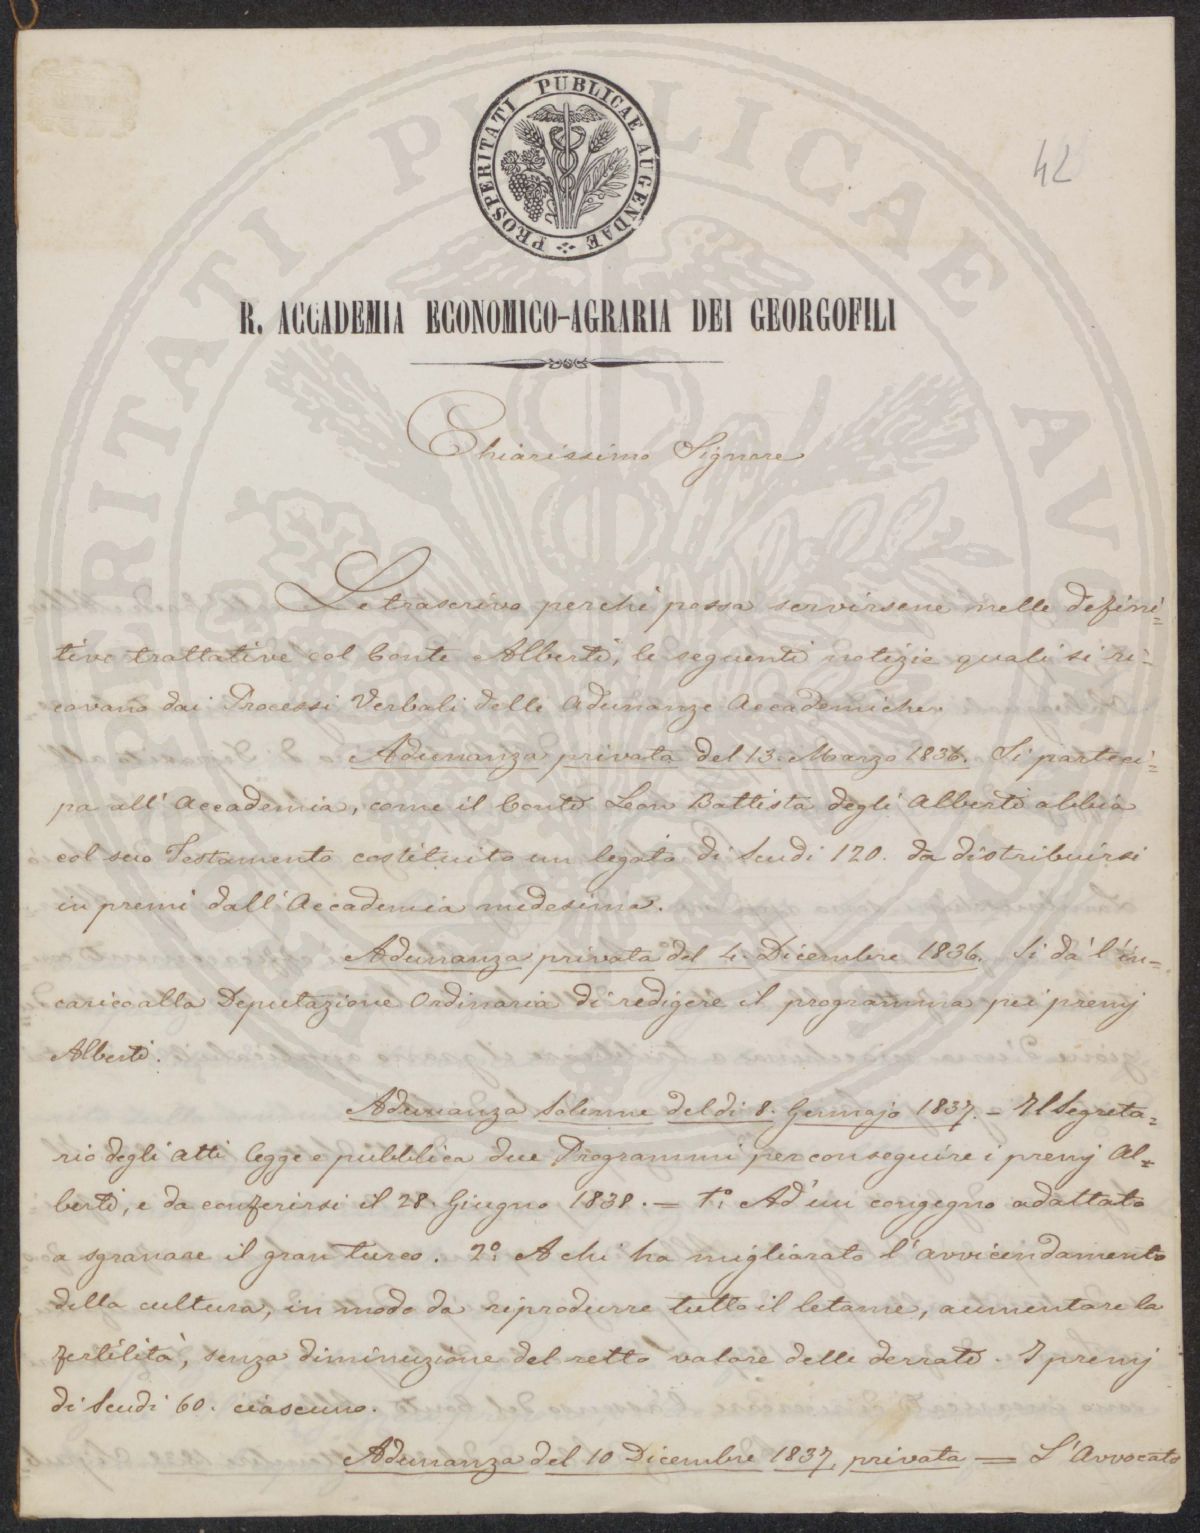 PROSPERITATI PUBLICAE AUGENDAE
42
R. ACCADEMIA ECONOMICO-AGRARIA DEI GEORGOFILI
Chiarissimo Signore
Le trascrivo perchè possa servirsene nelle defini=
tive trattative col Conte Alberti, le seguenti notizie quali si ri=
cavano dai Processi Verbali delle Adunanze Accademiche.
Adunanza privata del 13. Marzo 1836. Si parteci=
pa all' Accademia, come il Conte Leon Battista degli Alberti abbia
col suo Testamento costituito un legato di Scudi 120. da distribuirsi
in premi dall' Accademia medesima.
Adunanza privata del 4. Dicembre 1836. Si dà l'in=
carico alla Deputazione Ordinaria di redigere il programma pei premj
Alberti.
Adunanza Solenne del dì 8. Gennajo 1837. = Il Segreta=
rio degli Atti legge e pubblica due Programmi per conseguire i premj Al=
berti, e da conferirsi il 28. Giugno 1838. = 1º: Ad un congegno adattato
a sgranare il gran turco. 2º: A chi ha migliorato l'avvicendamento
della cultura, in modo da riprodurre tutto il letame, aumentare la
fertilità, senza diminuzione del retto valore delle derrate. I premj
di Scudi 60. ciascuno.
Adunanza del 10 Dicembre 1837, privata = L'Avvocato